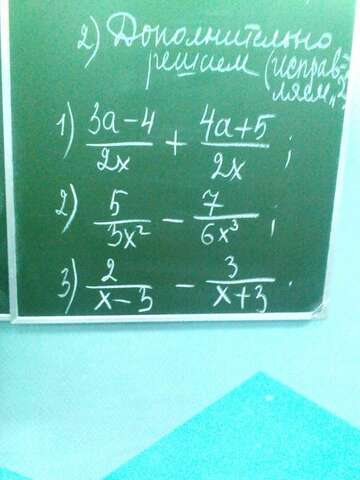 2) Дополнительно
решаем (исправ-
ляем „2
1) \frac{3a-4}{2x} + \frac{4a+5}{2x};
2) \frac{5}{3x^2} - \frac{7}{6x^3};
3) \frac{2}{x-3} - \frac{3}{x+3}.